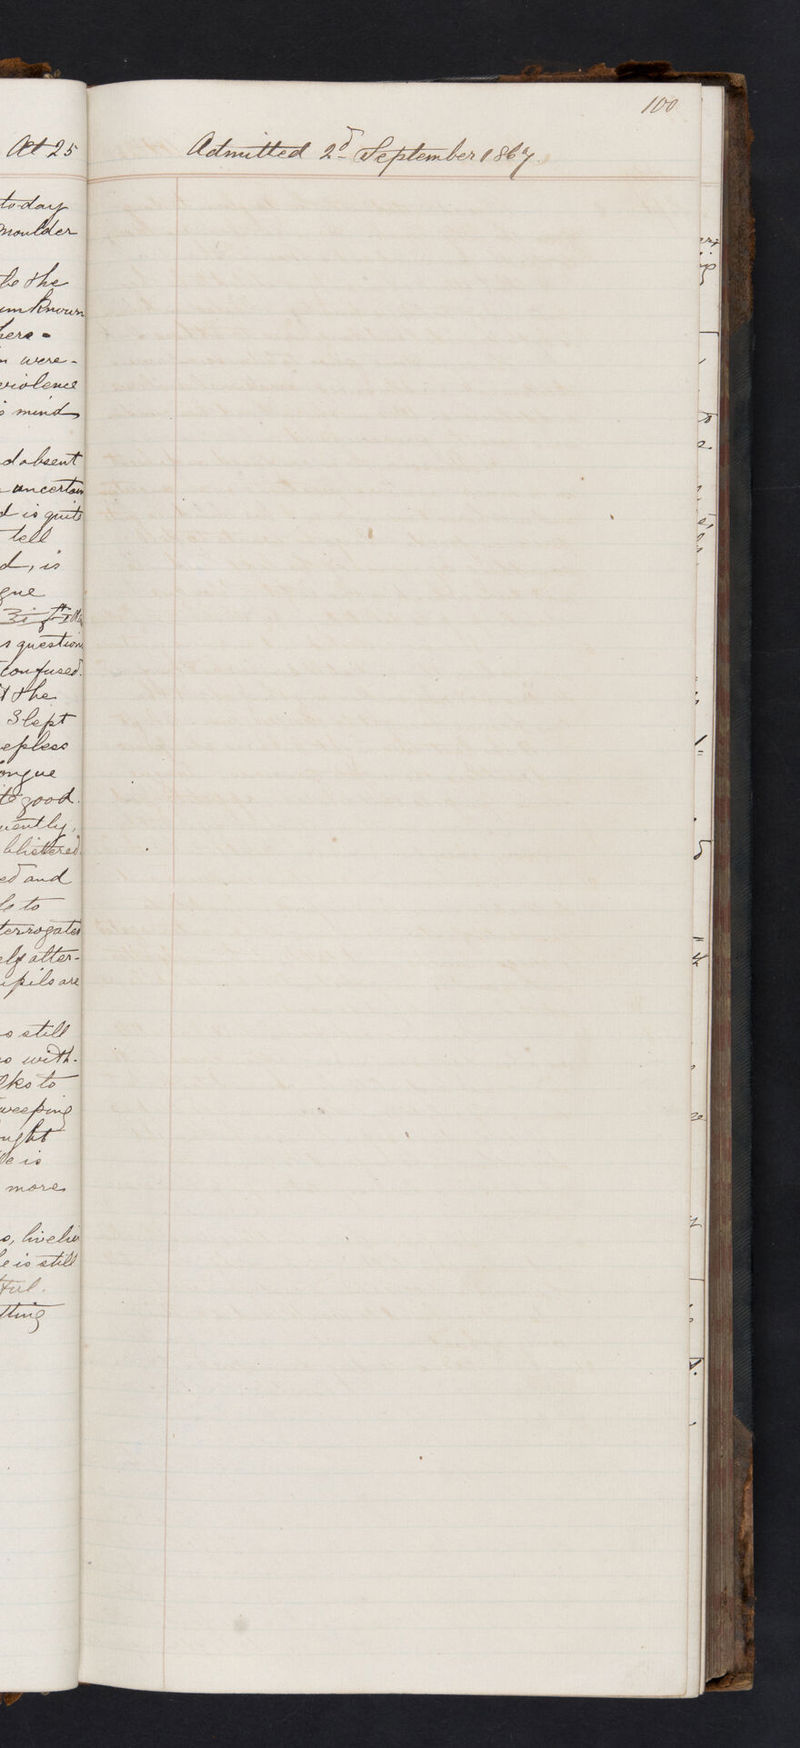 At 25
to-day
moulder
be the
unknown
here -
were -
violence
mind
d absent
uncertain
d is quite
tell
d, is
gue
s question
confused.
t the
Slept
epless
ongue
te good.
uently,
blistered
ed and
ls to
terrogates
ely atter-
upils are
o still
o with-
lks to
weeping
ught
He is
more
s, livelier
he is still
ful.
thing
100
Admitted 2d September 1867.